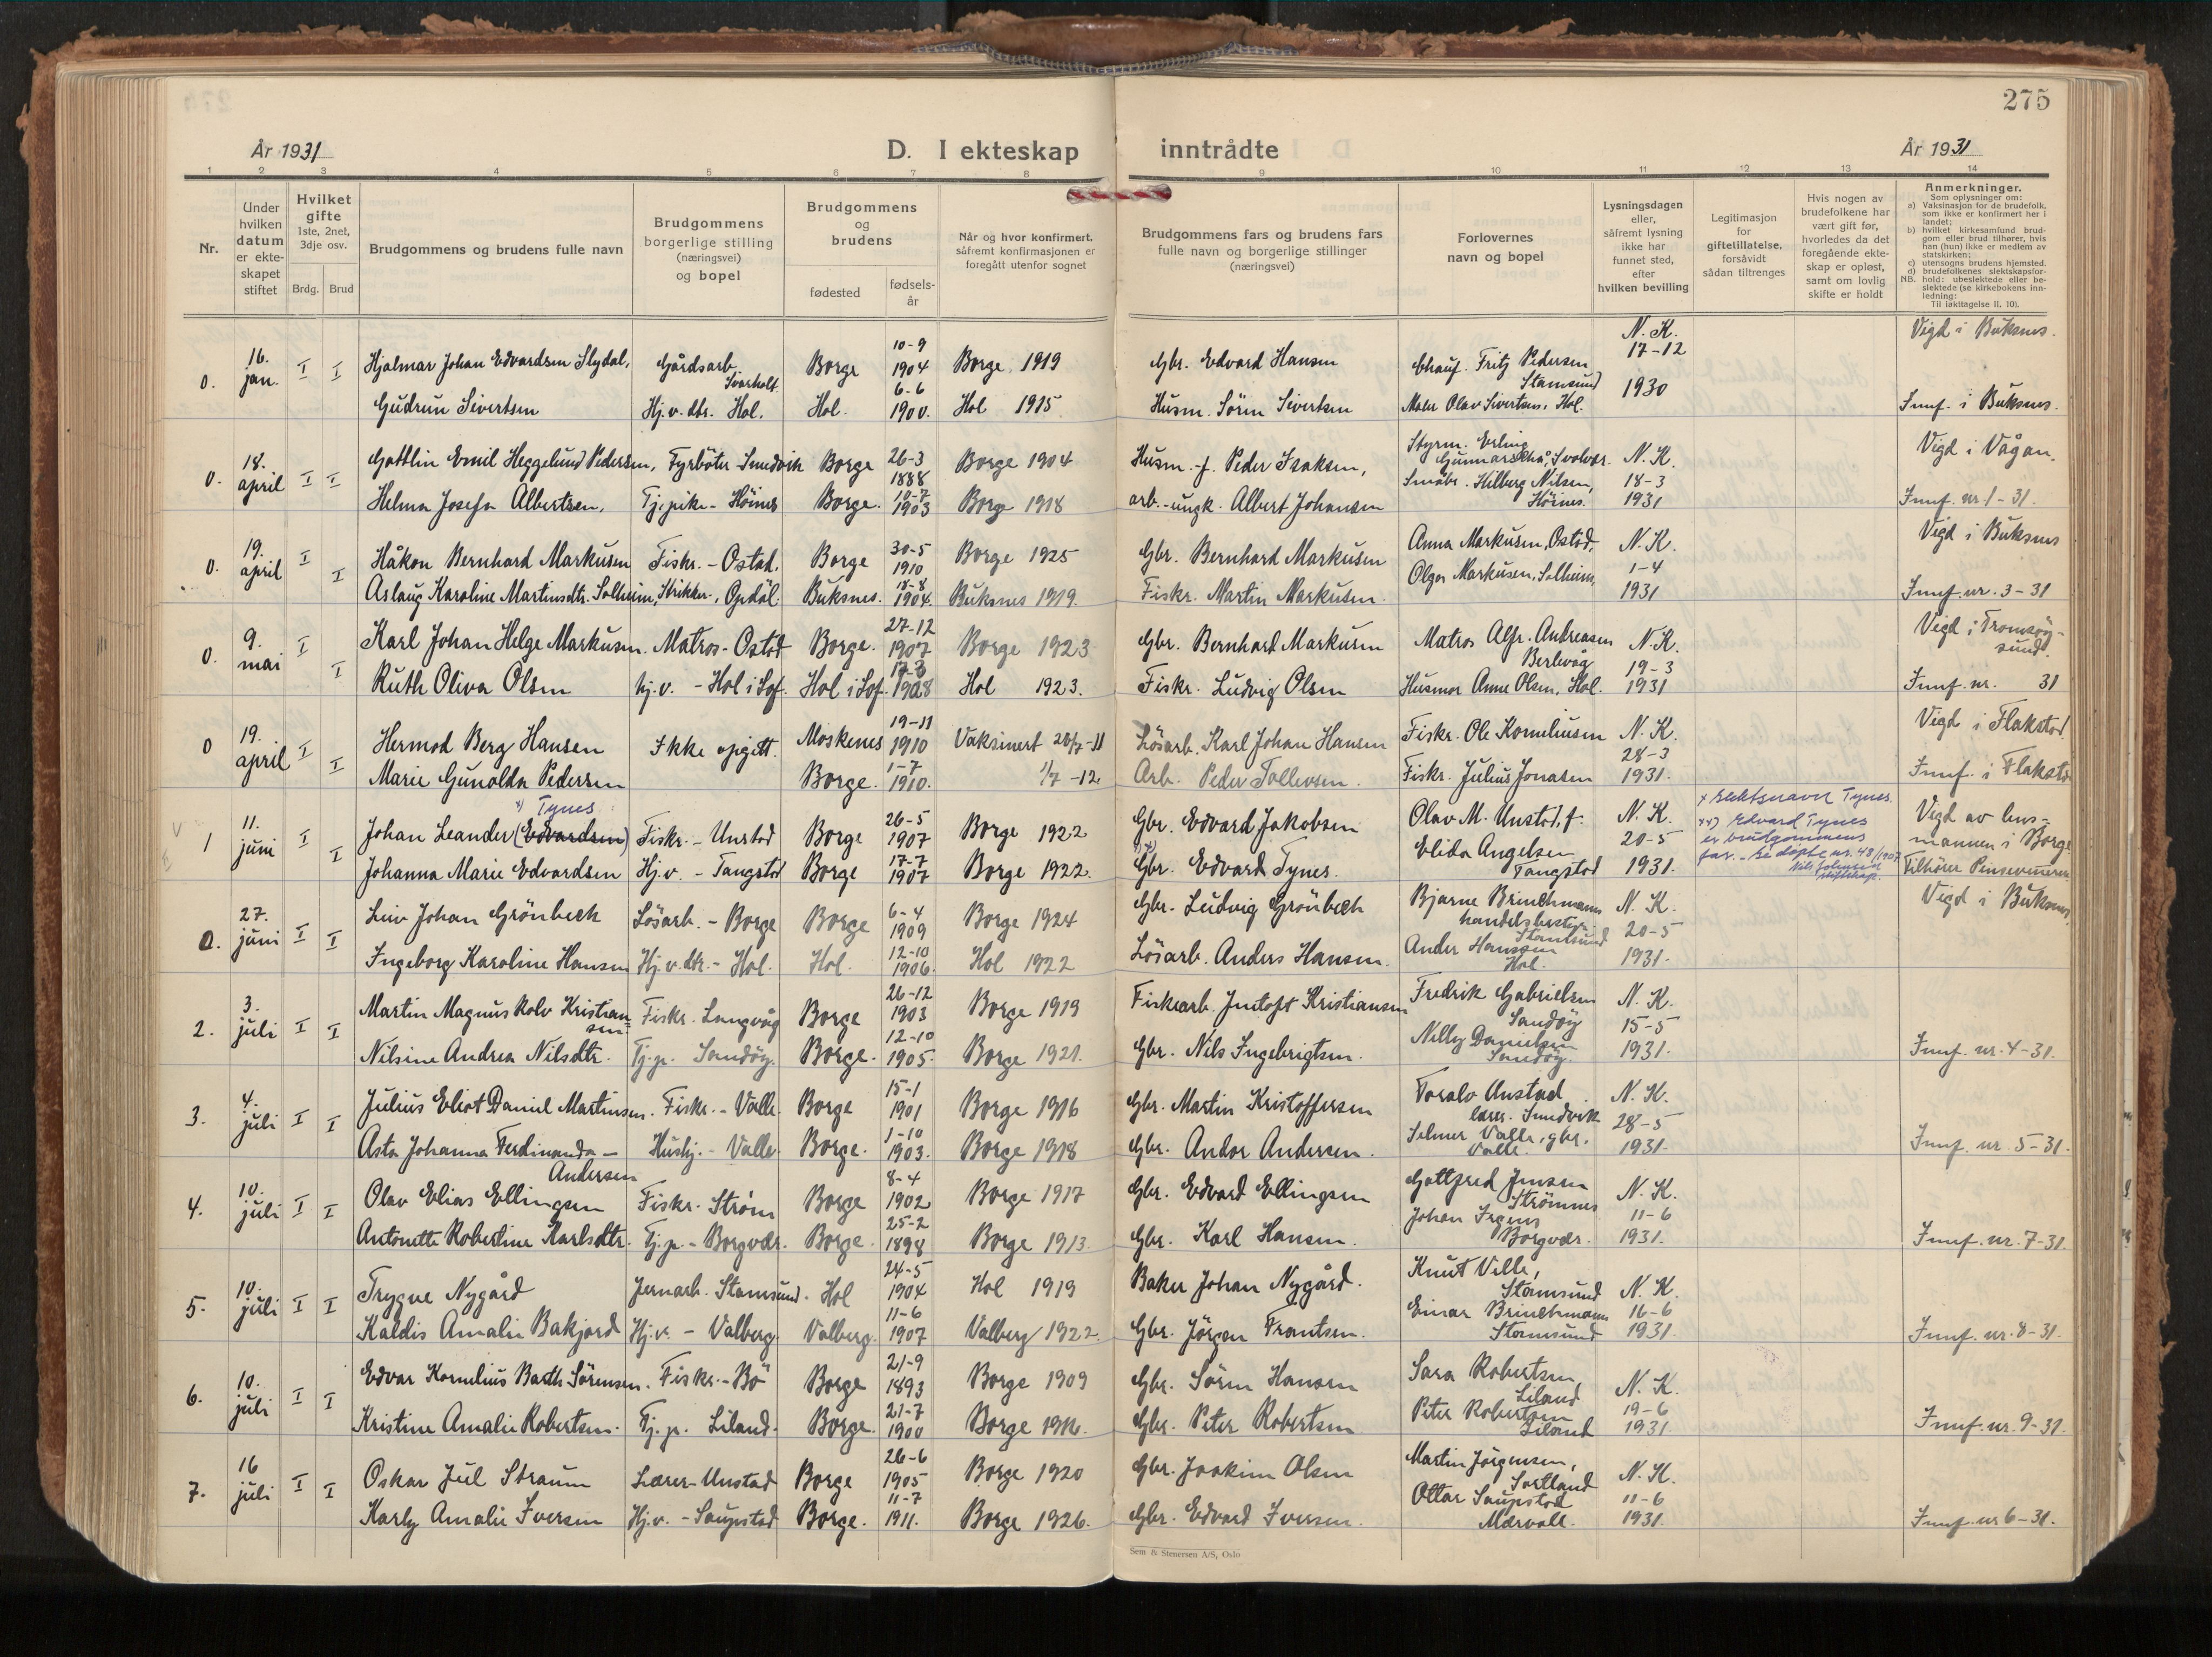 275
År 1931
D. I ekteskap inntrådte
År 1931
1 2 3 4 5 6 7 8 9 10 11 12 13 14
Nr.
Under hvilken datum er ekteskapet stiftet
Hvilket gifte 1ste, 2net, 3dje osv.
Brdg. Brud
Brudgommens og brudens fulle navn
Brudgommens borgerlige stilling (næringsvei) og bopel
Brudgommens og brudens
fødested
fødsels-år
Når og hvor konfirmert, såfremt konfirmasjonen er foregått utenfor sognet
Brudgommens fars og brudens fars fulle navn og borgerlige stillinger (næringsvei)
Forlovernes navn og bopel
Lysningsdagen eller, såfremt lysning ikke har funnet sted, efter hvilken bevilling
Legitimasjon for giftetillatelse, forsåvidt sådan tiltrenges
Hvis nogen av brudefolkene har vært gift før, hvorledes da det foregående ekteskap er opløst, samt om lovlig skifte er holdt
Anmerkninger.
Som oplysninger om:
a) Vaksinasjon for de brudefolk, som ikke er konfirmert her i landet;
b) hvilket kirkesamfund brudgom eller brud tilhører, hvis han (hun) ikke er medlem av statskirken;
c) utensogns brudens hjemsted.
d) brudefolkenes slektskapsforhold: ubeslektede eller beslektede (se kirkebokens innledning:
NB.
Til iakttagelse II. 10).
0. 16. jan. I I Hjalmar Johan Edvardsen Slydal, Gårdsarb. Svarholt Borge 10-9 1904 Borge 1919 Gbr. Edvard Hansen Chauf. Fritz Pedersen Stamsund N. K. 17-12 1930 Vigd i Buksnes.
Gudrun Sivertsen Hj.v. dtr. Hol. Hol. 6-6 1900. Hol 1915 Husm. Sörin Sivertsen Maler Olav Sivertsen, Hol. Innf. i Buksnes.
0. 18. april I I Gottlin Emil Heggelund Pedersen, Fyrböter Smedvik Borge 26-3 1888 Borge 1904 Husm.-f. Peder Isaksen, Styrm. Erling Gunnarschå, Svolvær. N. K. 18-3 1931 Vigd i Vågan.
Helma Josefa Albertsen, Tj.pike - Höines Borge. 10-7 1903 Borge 1918 arb.-ungk. Albert Johansen Småbr. Hilberg Nilsen, Höines. Innf. nr. 1-31.
0. 19. april I I Håkon Bernhard Markusen Fiskr. - Ostad. Borge 30-5 1910 Borge 1925 Gbr. Bernhard Markusen Anna Markusen, Ostad, N. K. 1-4 1931 Vigd i Buksnes
Aslaug Karoline Martinsdtr. Solheim, Strikker., Opdöl Buksnes. 18-8 1904. Buksnes 1919. Fiskr. Martin Markusen. Olga Markusen, Solheim, Innf. nr. 3-31
0. 9. mai I I Karl Johan Helge Markusen. Matros - Ostad Borge. 27-12 1907 Borge 1923 Gbr. Bernhard Markusen Matros Alfr. Andreasen Berlevåg N. K. 19-3 1931 Vigd i Tromsöysund.
Ruth Oliva Olsen hj.v. - Hol i Lof. Hol i Lof. 17-3 1908 Hol 1923. Fiskr. Ludvig Olsen Husmor Anne Olsen, Hol. Innf. nr. 31
0 19. april I I Hermod Berg Hansen Ikke opgitt. Moskenes 19-11 1910 Vaksinert 20/7-11 Lösarb. Karl Johan Hansen Fiskr. Ole Korneliusen N. K. 28-3 1931. Vigd i Flakstad
Marie Gunolda Pedersen Borge. 1-7 1910. 1/7 -12. Arb. Peder Tollevsen. Fiskr. Julius Jonasen Innf. i Flakstad
1 11. juni I I x) Tynes Johan Leander (Edvardsen) Fiskr. - Unstad Borge 26-5 1907 Borge 1922 Gbr. Edvard Jakobsen Olav M. Unstad, f. N. K. 20-5 1931. x slektsnavn Tynes. xx) Edvard Tynes er brudgommens far. - se döpte nr. 48/1907 Vigd av lensmannen i Borge
Johanna Marie Edvardsen Hj.v. - Tangstad Borge 17-7 1907 Borge 1922. Gbr. Edvard Tynes. Elida Angelsen Tangstad Tilhører Pinsevennene
0. 27. juni I I Liv Johan Grönbech Lösarb. - Borge Borge 6-4 1909 Borge 1924 Gbr. Ludvig Grönbech Bjarne Brinchmann handelsbestyr. Stamsund N. K. 20-5 1931. Vigd i Buksnes
Ingeborg Karoline Hansen Hj.v. dtr. - Hol. Hol. 12-10 1906. Hol 1922 Lösarb. Anders Hansen. Ander Hanssen Hol.
2. 3. juli I I Martin Magnus Rolv Kristiansen. Fiskr. Langvåg Borge 26-12 1903 Borge 1919 Fiskearb. Jentoft Kristiansen Fredrik Gabrielsen Sandöy N. K. 15-5 1931.
Nilsine Andrea Nilsdtr. Tj.p. Sandöy. Borge. 12-10 1905. Borge 1921. Gbr. Nils Ingebrigtsen. Nelly Danielsen Sandöy. Innf. nr. 4-31.
3. 4. juli I I Julius Eliot Daniel Martinsen. Fiskr. - Valle. Borge 15-1 1901 Borge 1916 Gbr. Martin Kristoffersen Toralv Austad lærer. Smedvik N. K. 28-5 1931.
Asta Johanna Ferdinanda - Andersen Hushj. - Valle. Borge. 1-10 1903. Borge 1918 Gbr. Andor Andersen. Selmer Valle, gbr. Valle. Innf. nr. 5-31.
4. 10. juli I I Olav Elias Ellingsen Fiskr. Ström Borge 8-4 1902 Borge 1917 Gbr. Edvard Ellingsen Gottfred Jensen Strömnes N. K. 11-6 1931.
Antonette Robertine Karlsdtr. Tj.p. - Borgvær. Borge. 25-2 1898 Borge 1913. Gbr. Karl Hansen. Johan Irgens Borgvær. Innf. nr. 7-31.
5. 10. juli I I Trygve Nygård Jernarb. Stamsund. Hol 24-5 1904 Hol 1919 Baker Johan Nygård. Knut Velle, Stamsund N. K. 16-6 1931.
Kaldis Amalie Bakjord Hj.v. - Valberg. Valberg. 11-6 1907 Valberg 1922. Gbr. Jörgen Frantsen. Einar Brinchmann Stamsund Innf. nr. 8-31.
6. 10. juli I I Edvar Kornelius Barth Sörensen. Fiskr. - Bö Borge 21-9 1893 Borge 1909 Gbr. Sörin Hansen Sara Robertsen, Liland N. K. 19-6 1931.
Kristine Amalie Robertsen. Tj.p. Liland. Borge. 21-7 1900 Borge 1916. Gbr. Peter Robertsen Peter Robertsen Liland Innf. nr. 9-31.
7. 16 juli I I Oskar Jul Straum Lærer - Unstad Borge 26-6 1905 Borge 1920 Gbr. Joakim Olsen Martin Jörgensen, Sortland N. K. 11-6 1931.
Karly Amalie Iversen Hj.v. - Saupstad Borge. 11-7 1911. Borge 1926. Gbr. Edvard Iversen. Ottar Saupstad Mærvoll. Innf. nr 6-31.
Sem & Stenersen A/S, Oslo